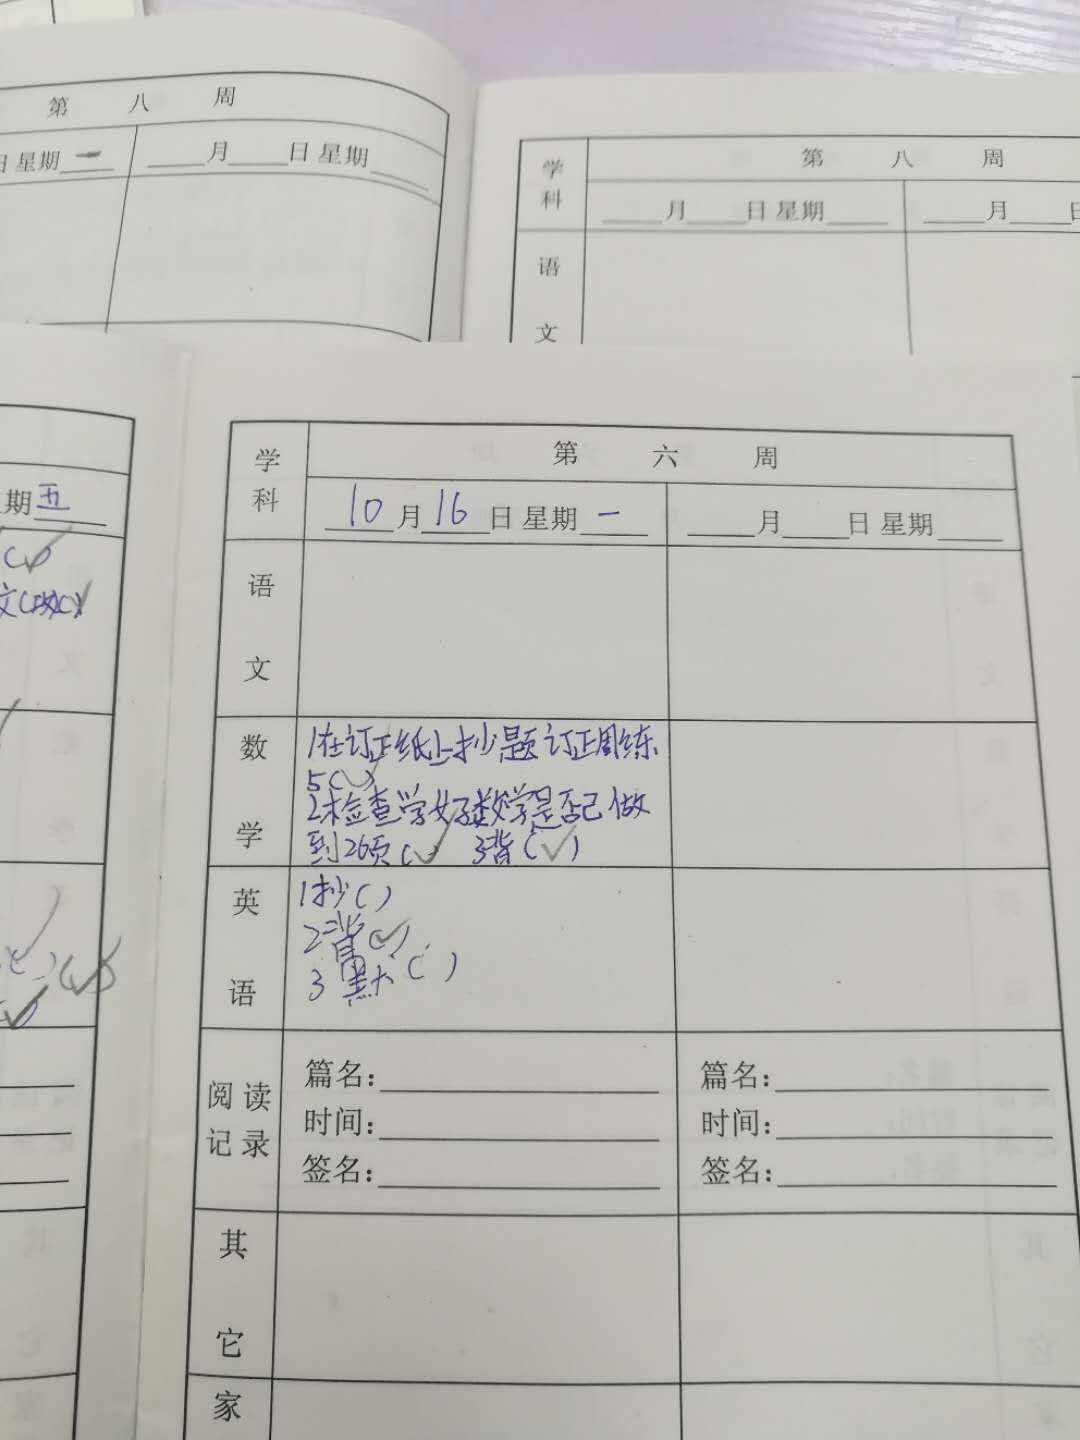 第 八 周
日 星期 一 月 日 星期
学科 第 八 周
月 日 星期 月 日
语文
期 五
学科 第 六 周
10 月 16 日 星期 一 月 日 星期
语文
数学
1在订正纸上抄题订正周练
5(✓)
2检查学好数学是否已做
到26页(✓) 3背(✓)
英语
1抄( )
2背(✓)
3默( )
阅读记录
篇名: 篇名:
时间: 时间:
签名: 签名:
其它
家